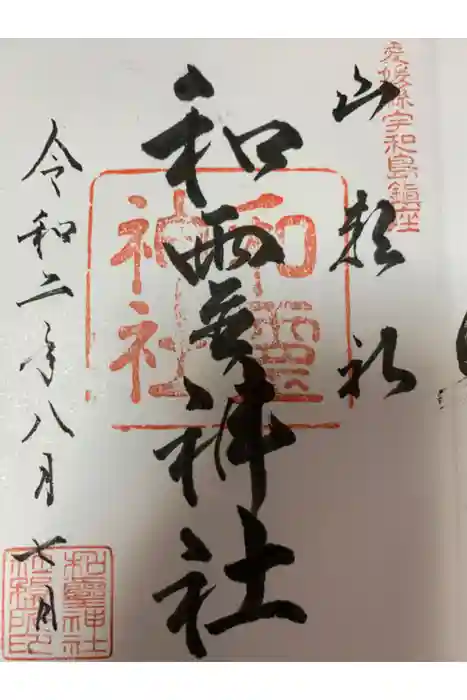 愛媛縣宇和島鎮座
山頼社
和霊神社
和靈
神社
令和二年八月七日
和靈神社
社務所印